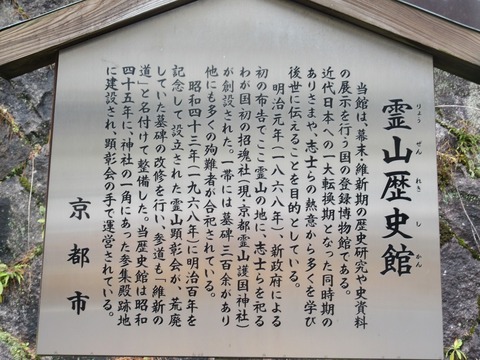 霊山歴史館
りょうぜんれきしかん
当館は、幕末・維新期の歴史研究や史資料
の展示を行う国の登録博物館である。
近代日本への一大転換期となった同時期の
ありさまや、志士らの熱意から多くを学び
後世に伝えることを目的としている。
明治元年（一八六八年）新政府による
初の布告でここ霊山の地に、志士らを祀る
わが国初の招魂社（現・京都霊山護国神社）
が創設された。一帯には墓碑三百余があり
他にも多くの殉難者が合祀されている。
昭和四十三年（一九六八年）に明治百年を
記念して設立された霊山顕彰会が、荒廃
していた墓碑の改修を行い、参道も「維新の
道」と名付けて整備した。当歴史館は昭和
四十五年に、神社の一角にあった参集殿跡地
に建設され、顕彰会の手で運営されている。
京都市